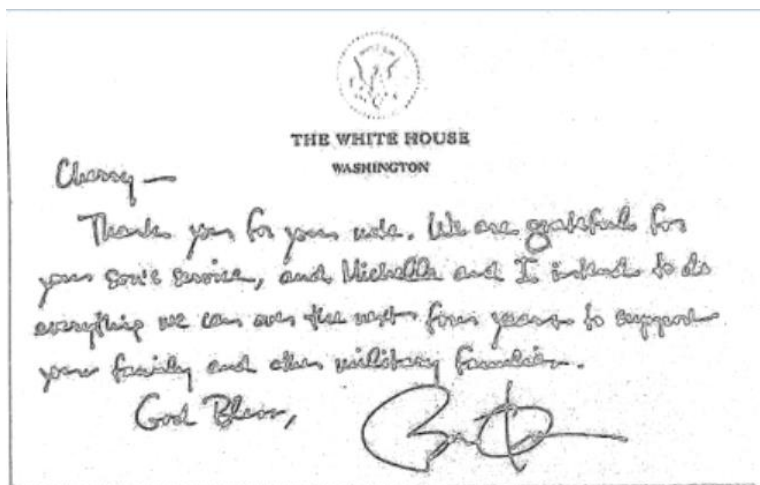 THE WHITE HOUSE
WASHINGTON
Cherry —
Thank you for your note. We are grateful for
your son's service, and Michelle and I intend to do
everything we can over the next four years to support
your family and other military families.
God Bless,